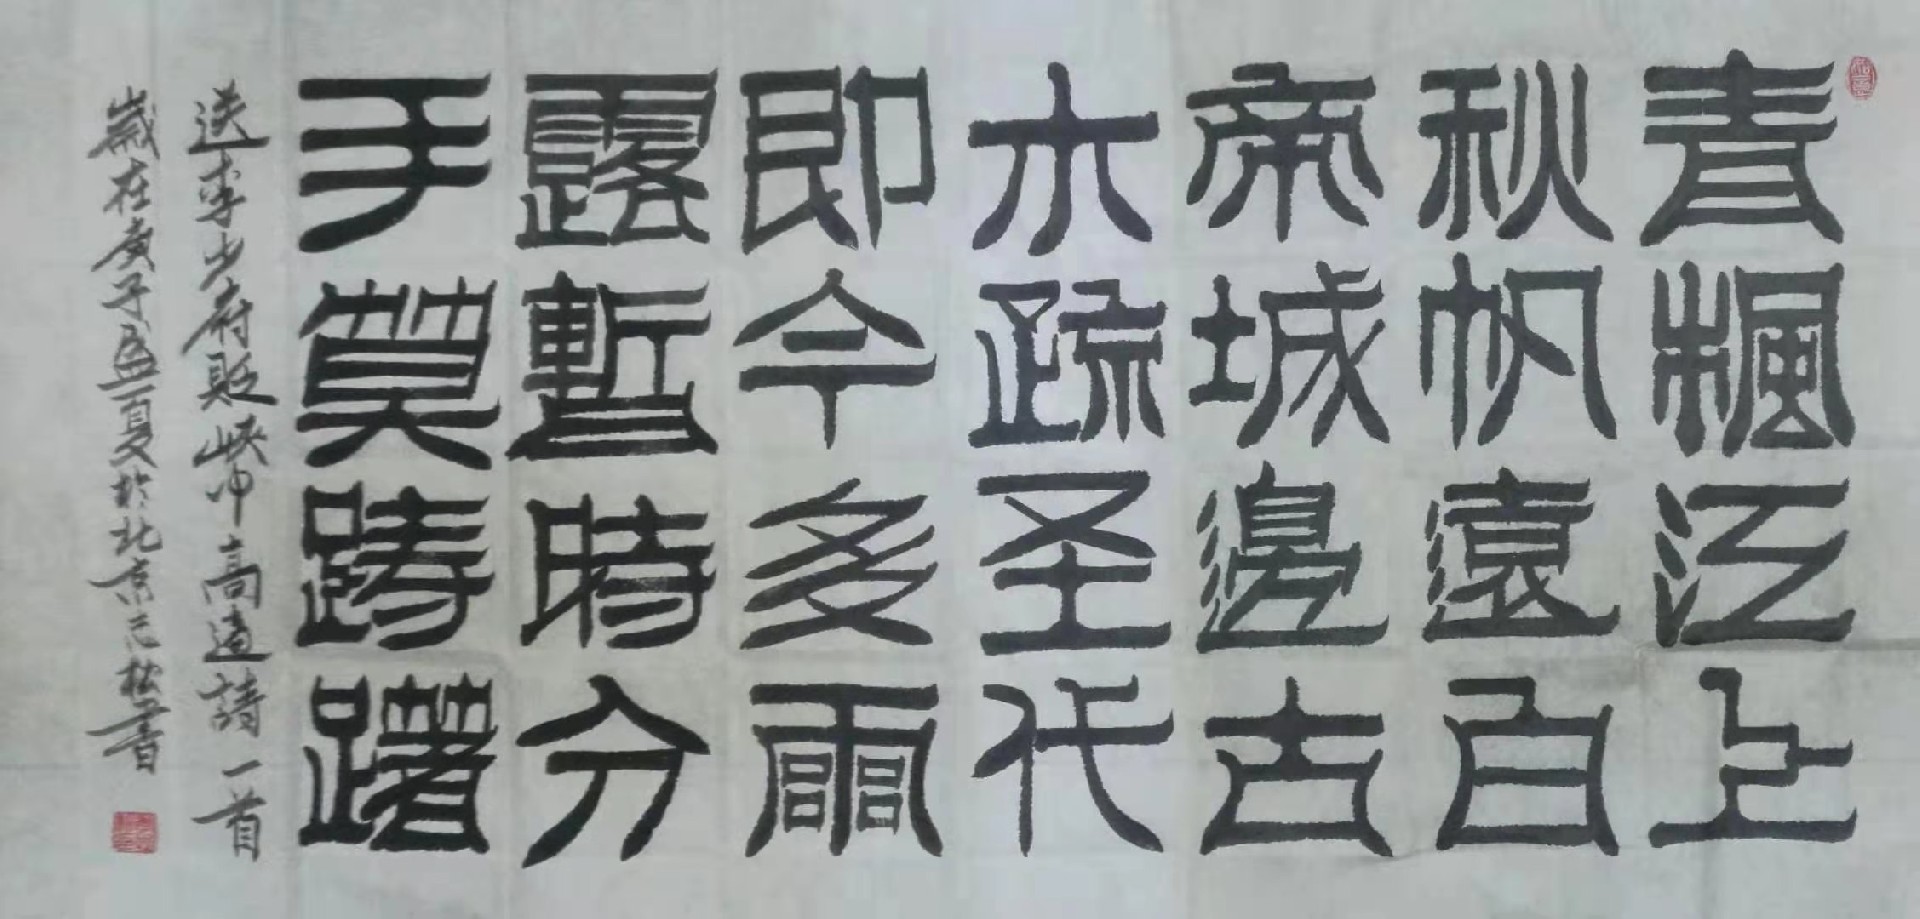 青楓江上
秋帆遠白
帝城邊古
木疏圣代
即今多雨
露暫時分
手莫躊躇
送李少府貶峽中高適詩一首
歲在庚子孟夏於北京志松書